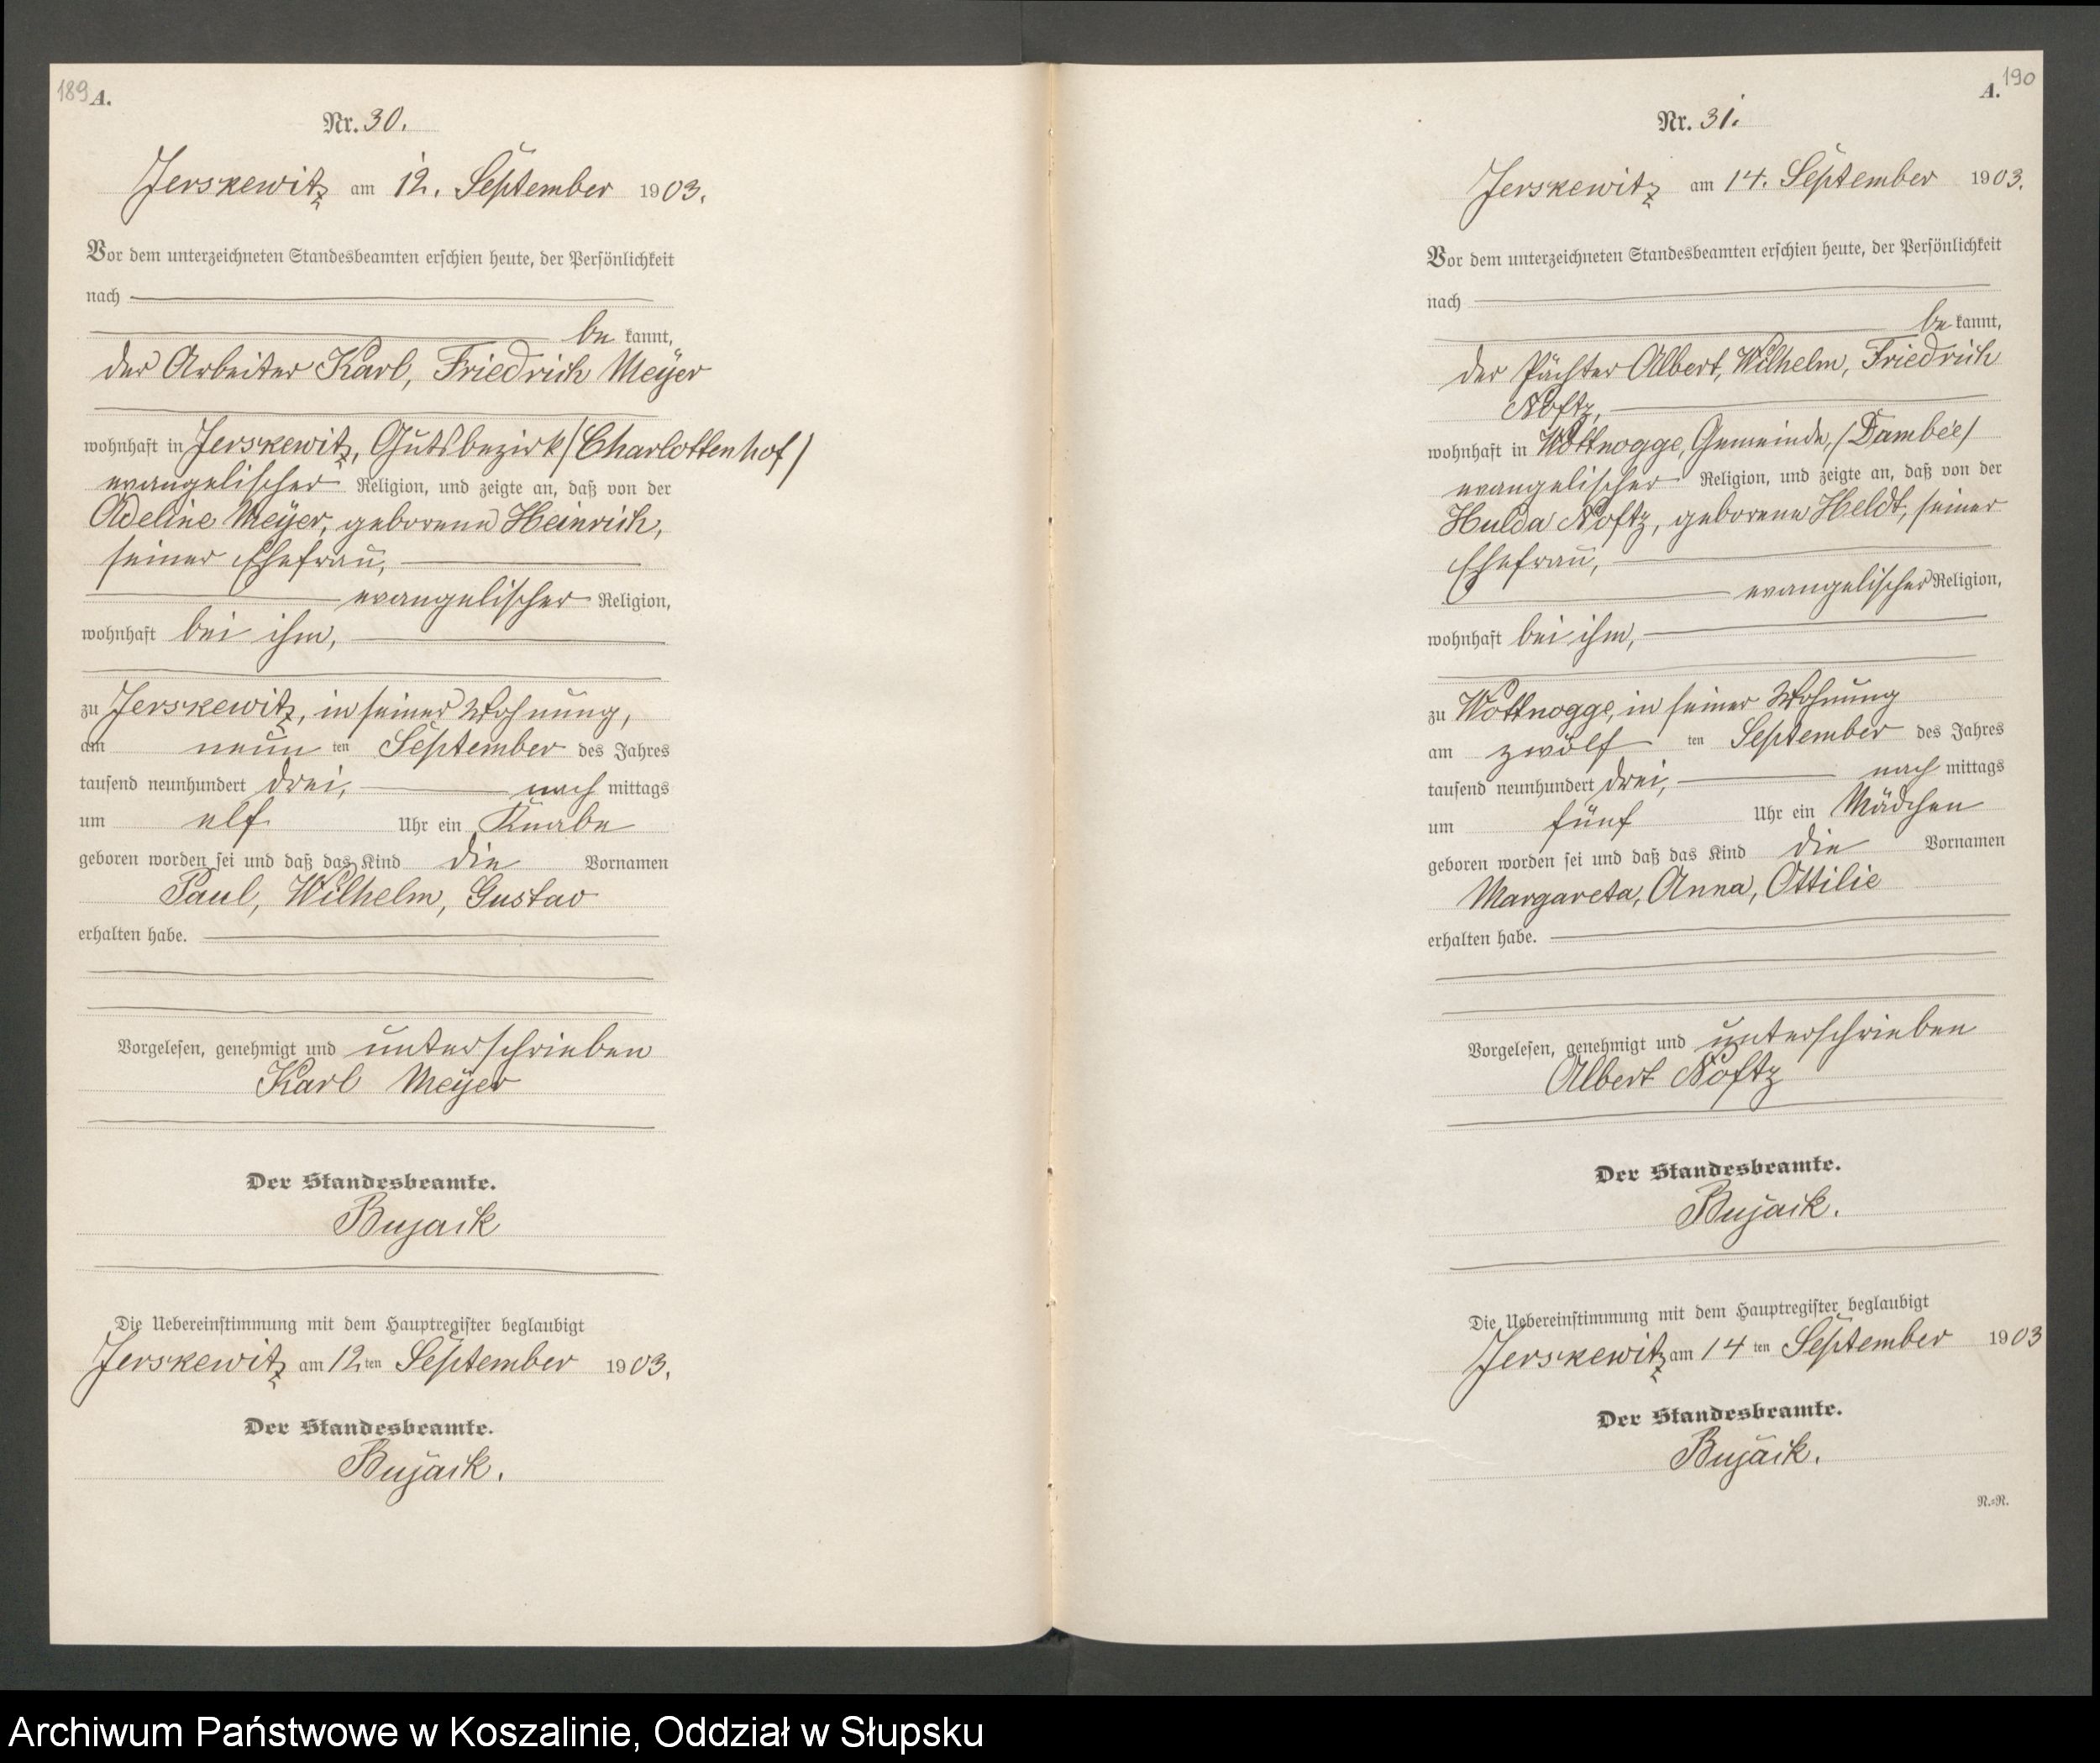 189 A.
Nr. 30.
Jerskewitz am 12. September 1903.
Vor dem unterzeichneten Standesbeamten erschien heute, der Persönlichkeit
nach
be kannt,
der Arbeiter Karl, Friedrich Meyer
wohnhaft in Jerskewitz, Gutsbezirk /Charlottenhof/
evangelischer Religion, und zeigte an, daß von der
Adeline Meyer, geborene Heinrich,
seiner Ehefrau,
evangelischer Religion,
wohnhaft bei ihm,
zu Jerskewitz, in seiner Wohnung,
am neun ten September des Jahres
tausend neunhundert drei, nach mittags
um elf Uhr ein Knabe
geboren worden sei und daß das Kind die Vornamen
Paul, Wilhelm, Gustav
erhalten habe.
Vorgelesen, genehmigt und unterschrieben
Karl Meyer
Der Standesbeamte.
Bujack
Die Uebereinstimmung mit dem Hauptregister beglaubigt
Jerskewitz am 12 ten September 1903.
Der Standesbeamte.
Bujack.
A. 190
Nr. 31.
Jerskewitz am 14. September 1903.
Vor dem unterzeichneten Standesbeamten erschien heute, der Persönlichkeit
nach
be kannt,
der Pächter Albert, Wilhelm, Friedrich
Noftz,
wohnhaft in Wottnogge, Gemeinde, /Dambee/
evangelischer Religion, und zeigte an, daß von der
Hulda Noftz, geborene Heldt, seiner
Ehefrau,
evangelischer Religion,
wohnhaft bei ihm,
zu Wottnogge, in seiner Wohnung
am zwölf ten September des Jahres
tausend neunhundert drei, nach mittags
um fünf Uhr ein Mädchen
geboren worden sei und daß das Kind die Vornamen
Margareta, Anna, Ottilie
erhalten habe.
Vorgelesen, genehmigt und unterschrieben
Albert Noftz
Der Standesbeamte.
Bujack.
Die Uebereinstimmung mit dem Hauptregister beglaubigt
Jerskewitz am 14 ten September 1903
Der Standesbeamte.
Bujack.
N.=N.
Archiwum Państwowe w Koszalinie, Oddział w Słupsku